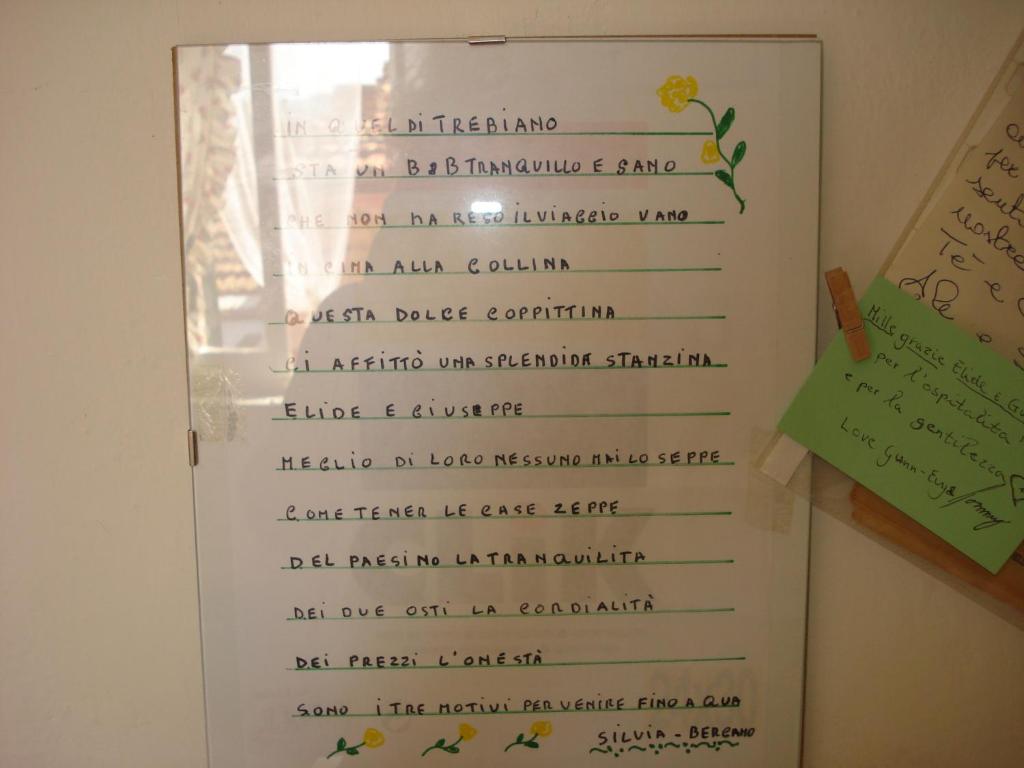 IN QUEL DI TREBIANO
STA UN B&B TRANQUILLO E SANO
CHE NON HA RESO IL VIAGGIO VANO
IN CIMA ALLA COLLINA
QUESTA DOLCE COPPITTINA
CI AFFITTÒ UNA SPLENDIDA STANZINA
ELIDE E GIUSEPPE
MEGLIO DI LORO NESSUNO MAI LO SEPPE
COME TENER LE CASE ZEPPE
DEL PAESINO LA TRANQUILITA
DEI DUE OSTI LA CORDIALITÀ
DEI PREZZI L'ONESTÀ
SONO I TRE MOTIVI PER VENIRE FINO A QUA
SILVIA - BERGAMO
per
nostre
Te e
Mille grazie Elide e
per l'ospitalita
e per la gentilezza
Love Gunn-Eva